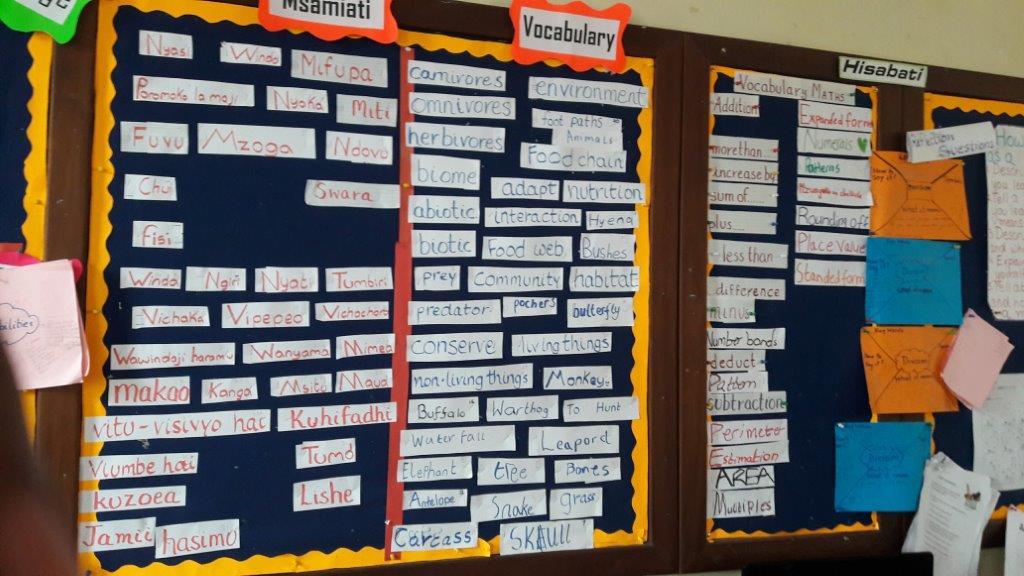 Msamiati
Nyasi Windo Mifupa
Poromoko la maji Nyoka Miti
Fuvu Mzoga Ndovu
Chui Swara
fisi
Winda Ngiri Nyati Tumbiri
Vichaka Vipepeo
Wawindaji haramu Wanyama Mimea
makao Kanga Msitu Maua
vitu-visivyo hai Kuhifadhi
Viumbe hai Tumo
kuzoea Lishe
Jamii hasimu
Vocabulary
carnivores environment
omnivores foot paths
Animals
herbivores Food chain
biome adapt nutrition
abiotic interaction Hyena
biotic Food web Bushes
prey Community habitat
predator pochers butterfly
conserve living things
non-living things Monkey
Buffalo Warthog To Hunt
Water fall Leapord
Elephant tree Bones
Antelope Snake grass
Carcass SKAULL
Hisabati
Vocabulary Maths
Addition
more than
increase by
sum of.....
plus....
less than
difference
minus
Number bonds
deduct
Pattern
subtraction
Perimeter
Estimation
AREA
Multiples
Expanded form
Numerals
Patterns
Rounding off
Place Value
Standed form
Reflection
Questions